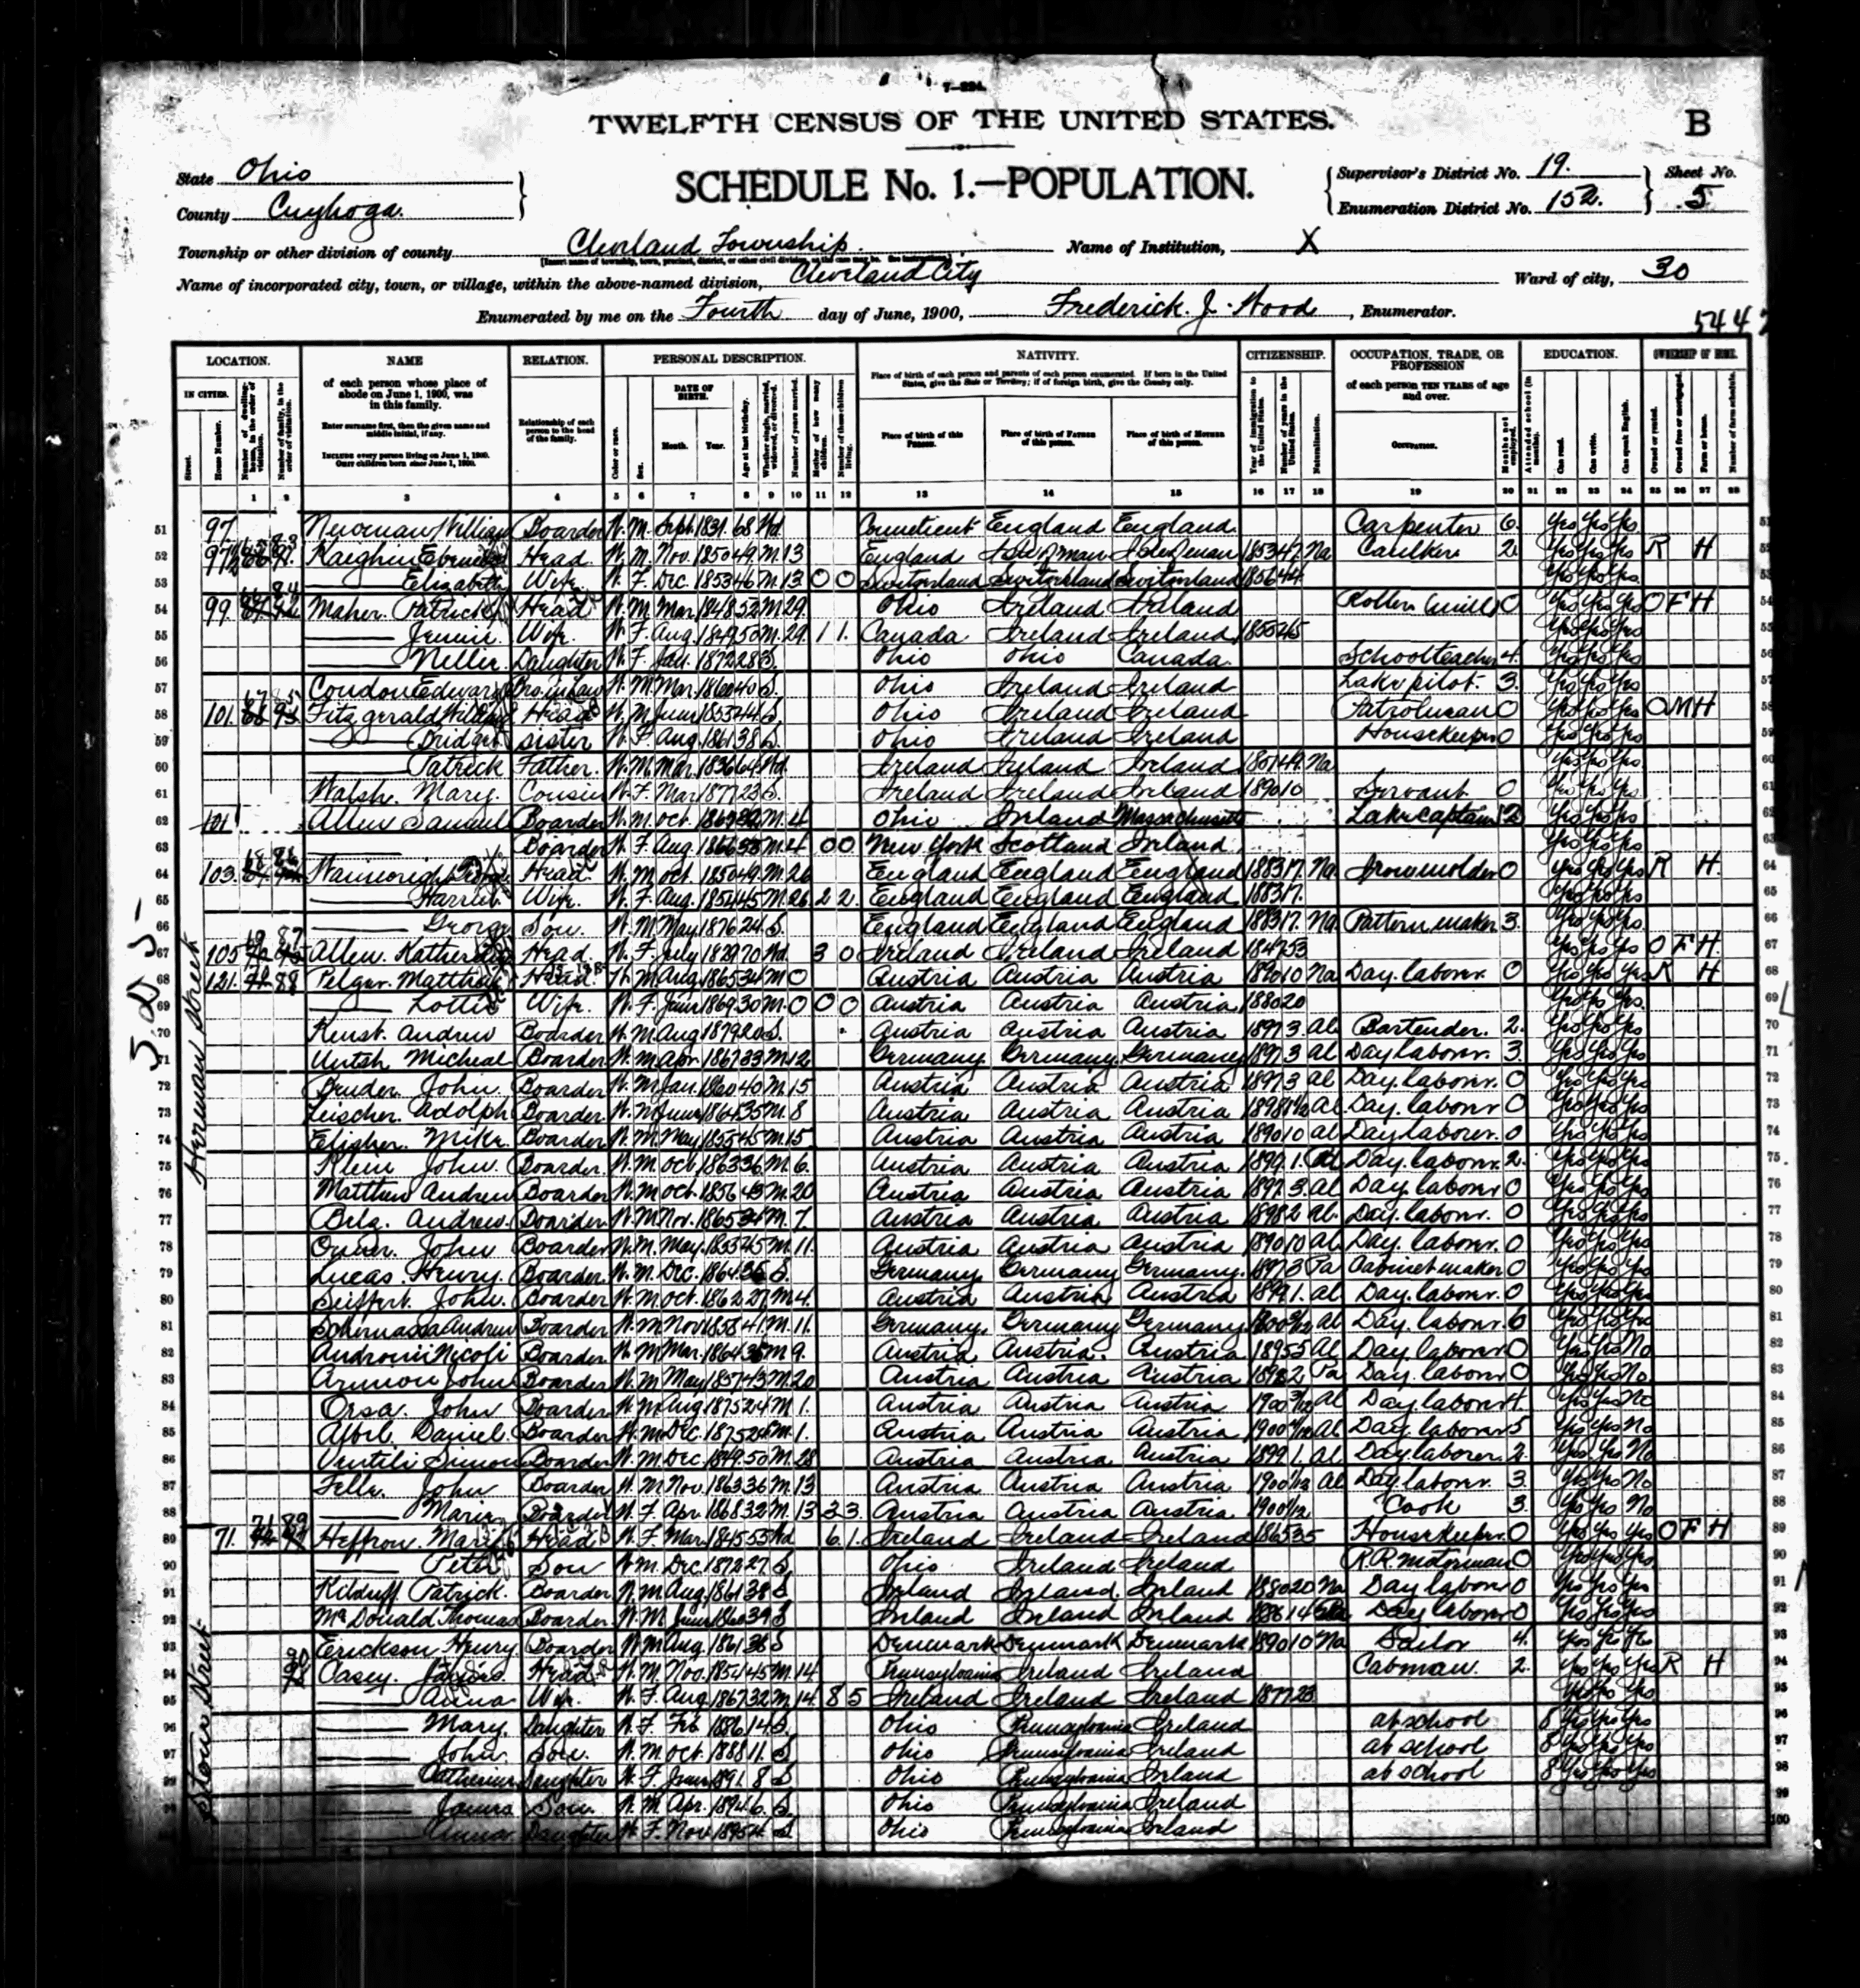 7-224.
TWELFTH CENSUS OF THE UNITED STATES.
B
State Ohio
County Cuyhoga.
SCHEDULE No. 1.—POPULATION.
Supervisor's District No. 19.
Enumeration District No. 152.
Sheet No.
5
Township or other division of county Cleveland Township.
Name of Institution, X
Name of incorporated city, town, or village, within the above-named division, Cleveland City
Ward of city, 30
Enumerated by me on the Fourth day of June, 1900, Frederick. J. Wood, Enumerator.
544
LOCATION. NAME RELATION. PERSONAL DESCRIPTION. NATIVITY. CITIZENSHIP. OCCUPATION, TRADE, OR PROFESSION EDUCATION. OWNERSHIP OF HOME.
IN CITIES. of each person whose place of abode on June 1, 1900, was in this family. DATE OF BIRTH. of each person TEN YEARS of age and over.
Enter surname first, then the given name and middle initial, if any.
INCLUDE every person living on June 1, 1900. OMIT children born since June 1, 1900.
Relationship of each person to the head of the family.
Place of birth of each person and parents of each person enumerated. If born in the United States, give the State or Territory; if of foreign birth, give the Country only.
Street. House Number. Color or race. Sex. Month. Year. Age at last birthday. Place of birth of this PERSON. Place of birth of FATHER of this person. Place of birth of MOTHER of this person. Naturalization. OCCUPATION. Can read. Can write. Can speak English. Owned or rented. Owned free or mortgaged. Farm or house. Number of farm schedule.
1 2 3 4 5 6 7 8 9 10 11 12 13 14 15 16 17 18 19 20 21 22 23 24 25 26 27 28
Herman Street
51 97 William Boarder W. M. Sept. 1831 68 Wd. England England Carpenter 6. Yes Yes Yes
52 Head. W. M. Nov. 1850 49 M. 13 England 1853 47 Na Caulker 2 Yes Yes Yes R H
53 Elizabeth Wife. W. F. Dec. 1853 46 M. 13 0 0 Switzerland Switzerland Switzerland 1856 44 Yes Yes Yes
54 99 Maher Patrick Head W. M. Mar. 1848 52 M. 29 Ohio Ireland Ireland 0 Yes Yes Yes O F H
55 Jennie. Wife. W. F. Aug. 1849 50 M. 29 1 1. Canada Ireland Ireland 1855 45 Yes Yes Yes
56 Nellie. Daughter W. F. Jan. 1872 28 S. Ohio Ohio Canada Schoolteacher 4. Yes Yes Yes
57 Condon Edward W. M. Mar. 1860 40 S. Ohio Ireland Ireland Lake pilot. 3. Yes Yes Yes
58 101. Fitzgerald William Head W. M. June 1855 44 S. Ohio Ireland Ireland Patrolman 0 Yes Yes Yes O M H
59 Bridget sister W. F. Aug. 1861 38 S. Ohio Ireland Ireland Housekeeper 0 Yes Yes Yes
60 Patrick Father. W. M. Mar. 1836 64 Wd. Ireland Ireland Ireland Na Yes Yes Yes
61 Walsh. Mary. Cousin W. F. Mar 1877 23 S. Ireland Ireland Ireland 1890 10 Servant 0 Yes Yes Yes
62 101 Allen Samuel Boarder W. M. Oct. M. 4 Ohio Ireland Massachusetts Lake captain 2 Yes Yes Yes
63 Boarder W. F. Aug. M. 4 0 0 New York Scotland Ireland Yes Yes Yes
64 103. Wainwright George Head W. M. Oct. 1850 49 M. 26 England England England 1883 17. Na Iron molder 0 Yes Yes Yes R H.
65 Harriet. Wife. W. F. Aug. 1854 45 M. 26 2 2. England England England 1883 17. Yes Yes Yes
66 George Son. W. M. May 1876 24 S. England England England 1883 17. Na Pattern maker 3. Yes Yes Yes
67 105 Allen. Katherine Head. W. F. July 1829 70 Wd. 3 0 Ireland Ireland Ireland 1847 53 Yes Yes Yes O F H.
68 121. 88 Pelger. Matthew Head. W. M Aug 1865 34 M 0 Austria Austria Austria 1890 10 Na Day. laborer. 0 Yes Yes Yes R H
69 Lottie Wife. W. F. June 1869 30 M. 0 0 0 Austria Austria Austria 1880 20 Yes Yes Yes
70 Kunst. Andrew Boarder W. M Aug 1879 20 S. Austria Austria Austria 1897 3. Al Bartender. 2. Yes Yes Yes
71 Micheal Boarder W. M Apr. 1867 33 M. 12 Germany. Germany. Germany 1897 3 Al Day laborer. 3. Yes Yes Yes
72 Bruder John. Boarder W. M. Jan. 1860 40 M. 15 Austria Austria Austria 1897 3 Al Day. laborer. 0 Yes Yes Yes
73 Adolph Boarder W. M June 1864 35 M. 8 Austria Austria Austria Al Day. laborer 0 Yes Yes Yes
74 Mike. Boarder W. M. May 1855 45 M. 15 Austria Austria Austria 1890 10 Al Day laborer. 0 Yes Yes Yes
75 Klein John. Boarder. W. M. Oct. 1863 36 M. 6. Austria Austria Austria 1899 1. Al Day. laborer. 2. Yes Yes Yes
76 Matthew Andrew Boarder W. M Oct. 1856 43 M. 20 Austria Austria Austria 1897. 3. Al Day. laborer 0 Yes Yes Yes
77 Andrew. Boarder W. M Nov. 1865 34 M. 7. Austria Austria Austria 1898 2 Al. Day. laborer. 0 Yes Yes Yes
78 John Boarder W. M. May. 1855 45 M. 11. Austria Austria Austria 1890 10 Al Day. laborer. 0 Yes Yes Yes
79 Lucas. Henry. Boarder. W. M. Dec. 1864 35 S. Germany Germany Germany. 1897 3 Pa Cabinet maker 0 Yes Yes Yes
80 Seiffert. John. Boarder W. M. Oct. 1862 M. 4. Austria Austria Austria 1899 1. Al Day. laborer. 0 Yes Yes Yes
81 Andrew Boarder W. M Nov 1858 41 M. 11. Germany. Germany Germany Al Day. laborer. 6 Yes Yes Yes
82 Boarder W. M Mar. 1864 M 9. Austria Austria. Austria 1895 5 Al Day. laborer 0 Yes Yes No
83 John Boarder W. M May 1857 43 M. 20 Austria Austria Austria 1898 2 Pa Day. laborer 0 Yes Yes No.
84 Orsa. John Boarder W M Aug 1875 24 M 1. Austria Austria Austria 1900 Al Day. laborer 4 Yes Yes No
85 Daniel. Boarder W. M. Dec. 1875 24 M. 1. Austria Austria Austria 1900 Al Day. laborer 5 Yes Yes No
86 Simon Boarder W. M Dec. 1849. 50 M. 28 Austria Austria Austria 1899 1. Al Day laborer 2 Yes Yes No
87 John Boarder W. M Nov. 1863 36 M. 13 Austria Austria Austria 1900 Al Day. laborer. 3. Yes Yes No
88 Maria Boarder W. F. Apr. 1868 32 M. 13 2 3. Austria Austria Austria 1900 Cook 3. Yes Yes No
Stow Street
89 71. Heffron. Mary Head W. F. Mar. 1845 55 Wd 6 1. Ireland Ireland Ireland 1865 35 Housekeeper. 0 Yes Yes Yes O F H
90 Peter Son W. M. Dec. 1872 27. S Ohio Ireland Ireland R.R. motorman 0 Yes Yes Yes
91 Kilduff Patrick. Boarder W. M Aug. 1861 38 S Ireland Ireland Ireland 1880 20 Na Day laborer 0 Yes Yes Yes
92 McDonald Thomas Boarder W. M. June 1860 39 S Ireland Ireland Ireland 1886 14 Day laborer 0 Yes Yes Yes
93 Erickson Henry Boarder W. M Aug. 1861 38 S Denmark Denmark Denmark 1890 10 Na Sailor 4. Yes Yes Yes
94 Casey. James. Head W. M. Nov. 1854 45 M. 14 Pennsylvania Ireland Ireland Cabman. 2. Yes Yes Yes R H
95 Anna Wife. W. F. Aug 1867 32 M 14 8 5 Ireland Ireland Ireland 1877 23 Yes Yes Yes
96 Mary. Daughter W. F. Feb. 1886 14 S. Ohio Pennsylvania Ireland at school 8 Yes Yes Yes
97 John Son. W. M Oct. 1888 11. S Ohio Pennsylvania Ireland at school 8 Yes Yes Yes
98 Catherine Daughter W. F. June 1891. 8 S Ohio Pennsylvania Ireland at school 8 Yes Yes Yes
99 James Son W. M. Apr. 1894 6. S. Ohio Pennsylvania Ireland
100 Anna Daughter W. F. Nov 1895 4 S Ohio Pennsylvania Ireland